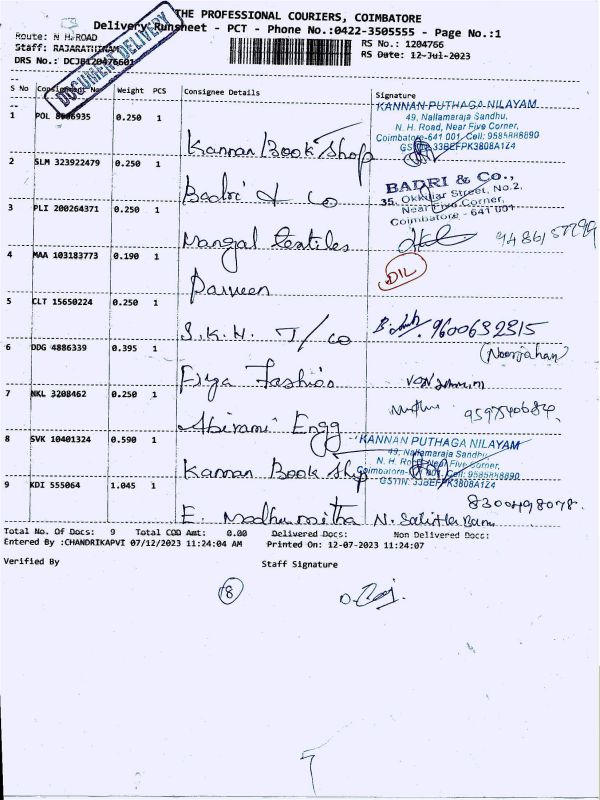 THE PROFESSIONAL COURIERS, COIMBATORE
Delivery Runsheet - PCT - Phone No.:0422-3505555 - Page No.:1
Route: N H ROAD
RS No.: 1204766
Staff: RAJARATHINAM
RS Date: 12-Jul-2023
DRS No.: DCJB120476601
DOCUMENT DELIVERY
S No Consignment No Weight PCS Consignee Details Signature
1 POL 8606935 0.250 1 Kannan Book Shop
KANNAN PUTHAGA NILAYAM
49, Nallamaraja Sandhu,
N. H. Road, Near Five Corner,
Coimbatore-641 001. Cell: 9585888890
GSTIN: 33BEFPK3808A1Z4
2 SLM 323922479 0.250 1 Badri & Co
BADRI & Co.,
35, Okkiliar Street, No.2,
Near Five Corner,
Coimbatore - 641 001
3 PLI 200264371 0.250 1 Mangal textiles
4 MAA 103183773 0.190 1 Parveen
DIL
5 CLT 15650224 0.250 1 S.K.N. T/co 9600632315
(Noorjahan)
6 DDG 4886339 0.395 1 Fiya Fashion
7 NKL 3208462 0.250 1 Abirami Engg
8 SVK 10401324 0.590 1 Kannan Book Shop
KANNAN PUTHAGA NILAYAM
49, Nallamaraja Sandhu,
N. H. Road, Near Five Corner,
Coimbatore-641 001. Cell: 9585888890
GSTIN: 33BEFPK3808A1Z4
9 KDI 555064 1.045 1 E. Madhumitha 8300498078.
Total No. Of Docs: 9 Total COD Amt: 0.00 Delivered Docs: Non Delivered Docs:
Entered By :CHANDRIKAPVI 07/12/2023 11:24:04 AM Printed On: 12-07-2023 11:24:07
Verified By Staff Signature
8